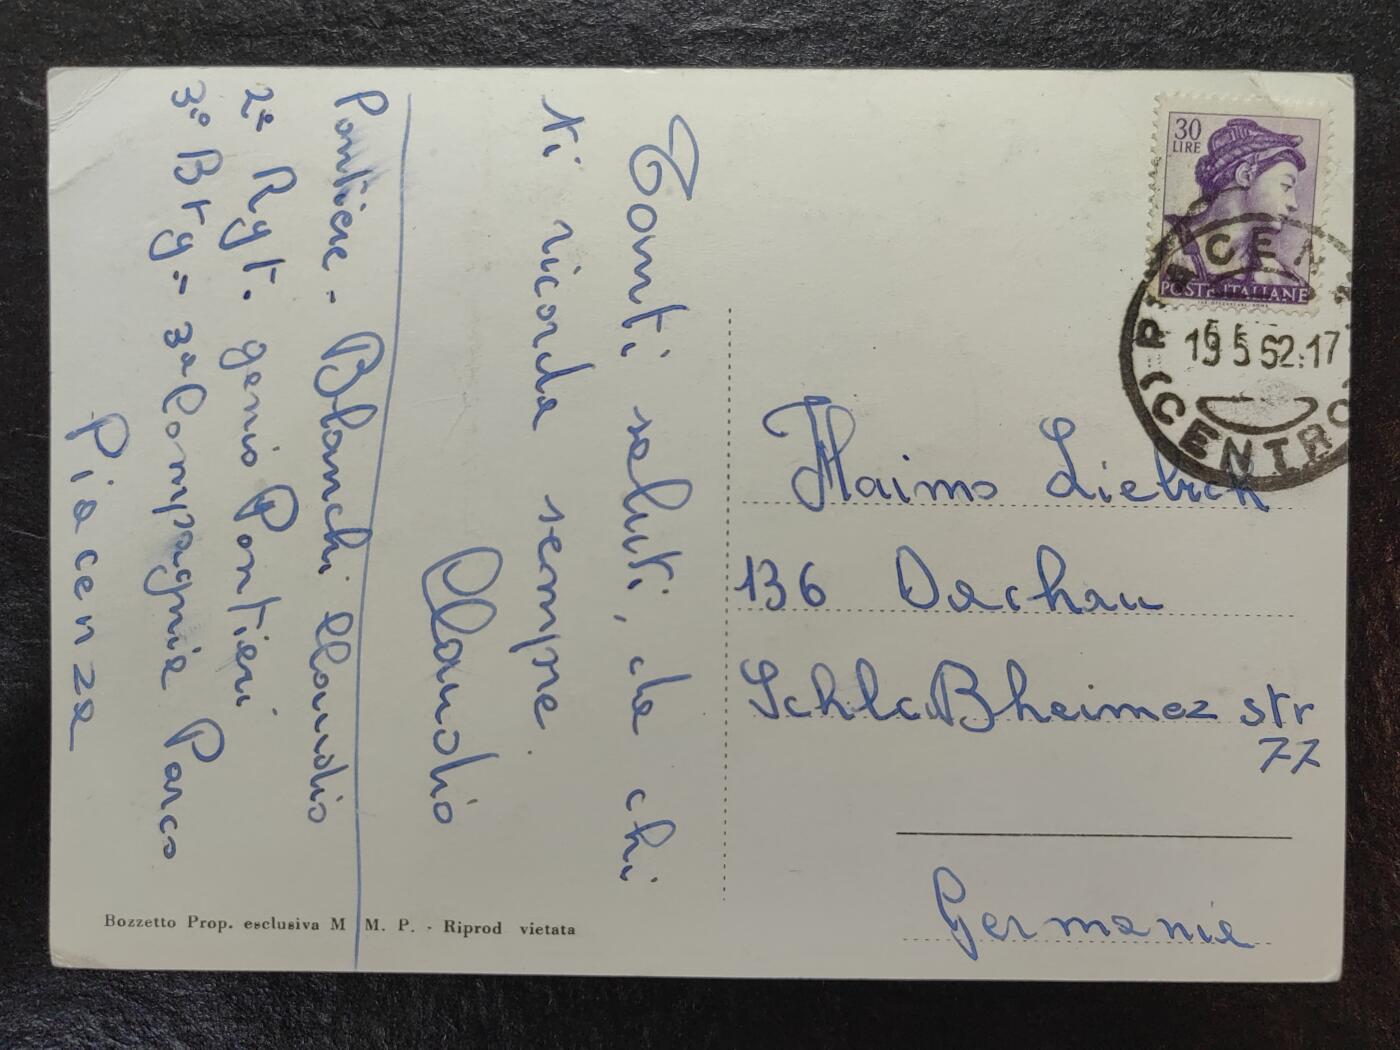 Tanti saluti, da chi
ti ricorda sempre.
Claudio
Pontiere - Bianchi Claudio
2° Rgt. genio Pontieri
3° Btg = 3ª Compagnia Parco
Piacenza
Bozzetto Prop. esclusiva M. M. P. - Riprod vietata
30
LIRE
POSTE ITALIANE
PIACENZA
19 5 62.17
(CENTRO)
Haimo Liebich
136 Dachau
SchlcBheimez str
77
Germania